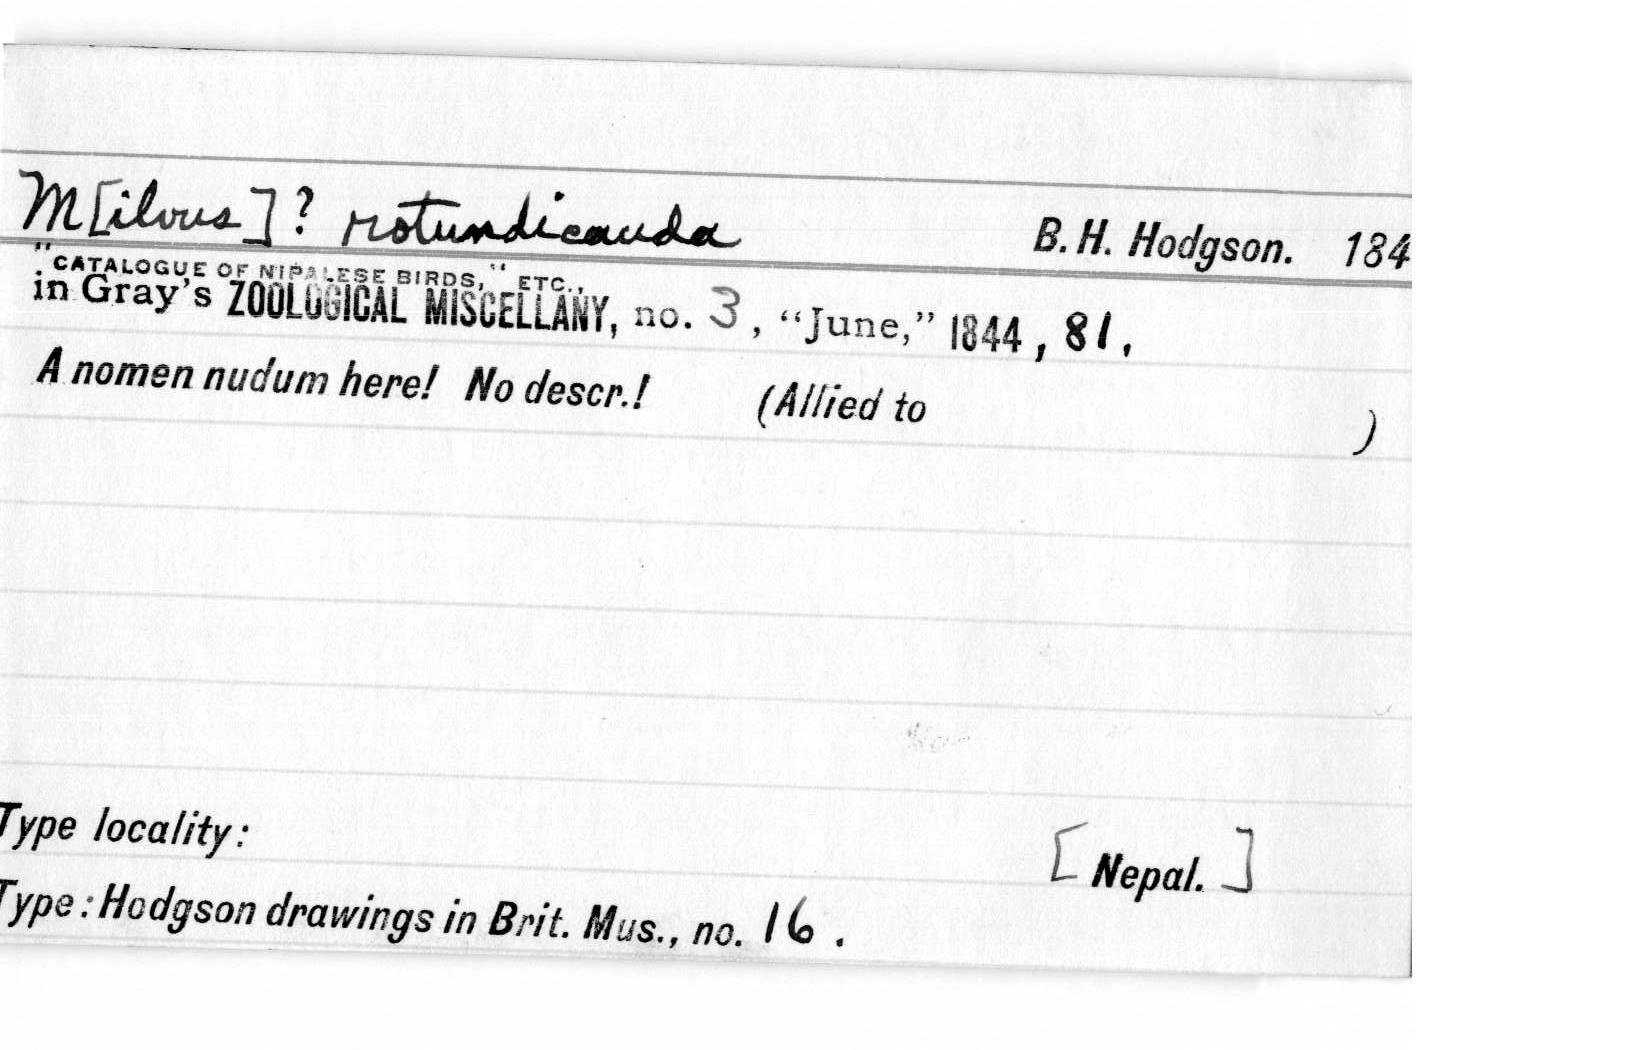 M[ilvus]? rotundicauda B. H. Hodgson. 184
"CATALOGUE OF NIPALESE BIRDS," ETC.,
in Gray's ZOOLOGICAL MISCELLANY, no. 3, "June," 1844, 81.
A nomen nudum here! No descr.! (Allied to )
Type locality: [Nepal.]
Type: Hodgson drawings in Brit. Mus., no. 16.